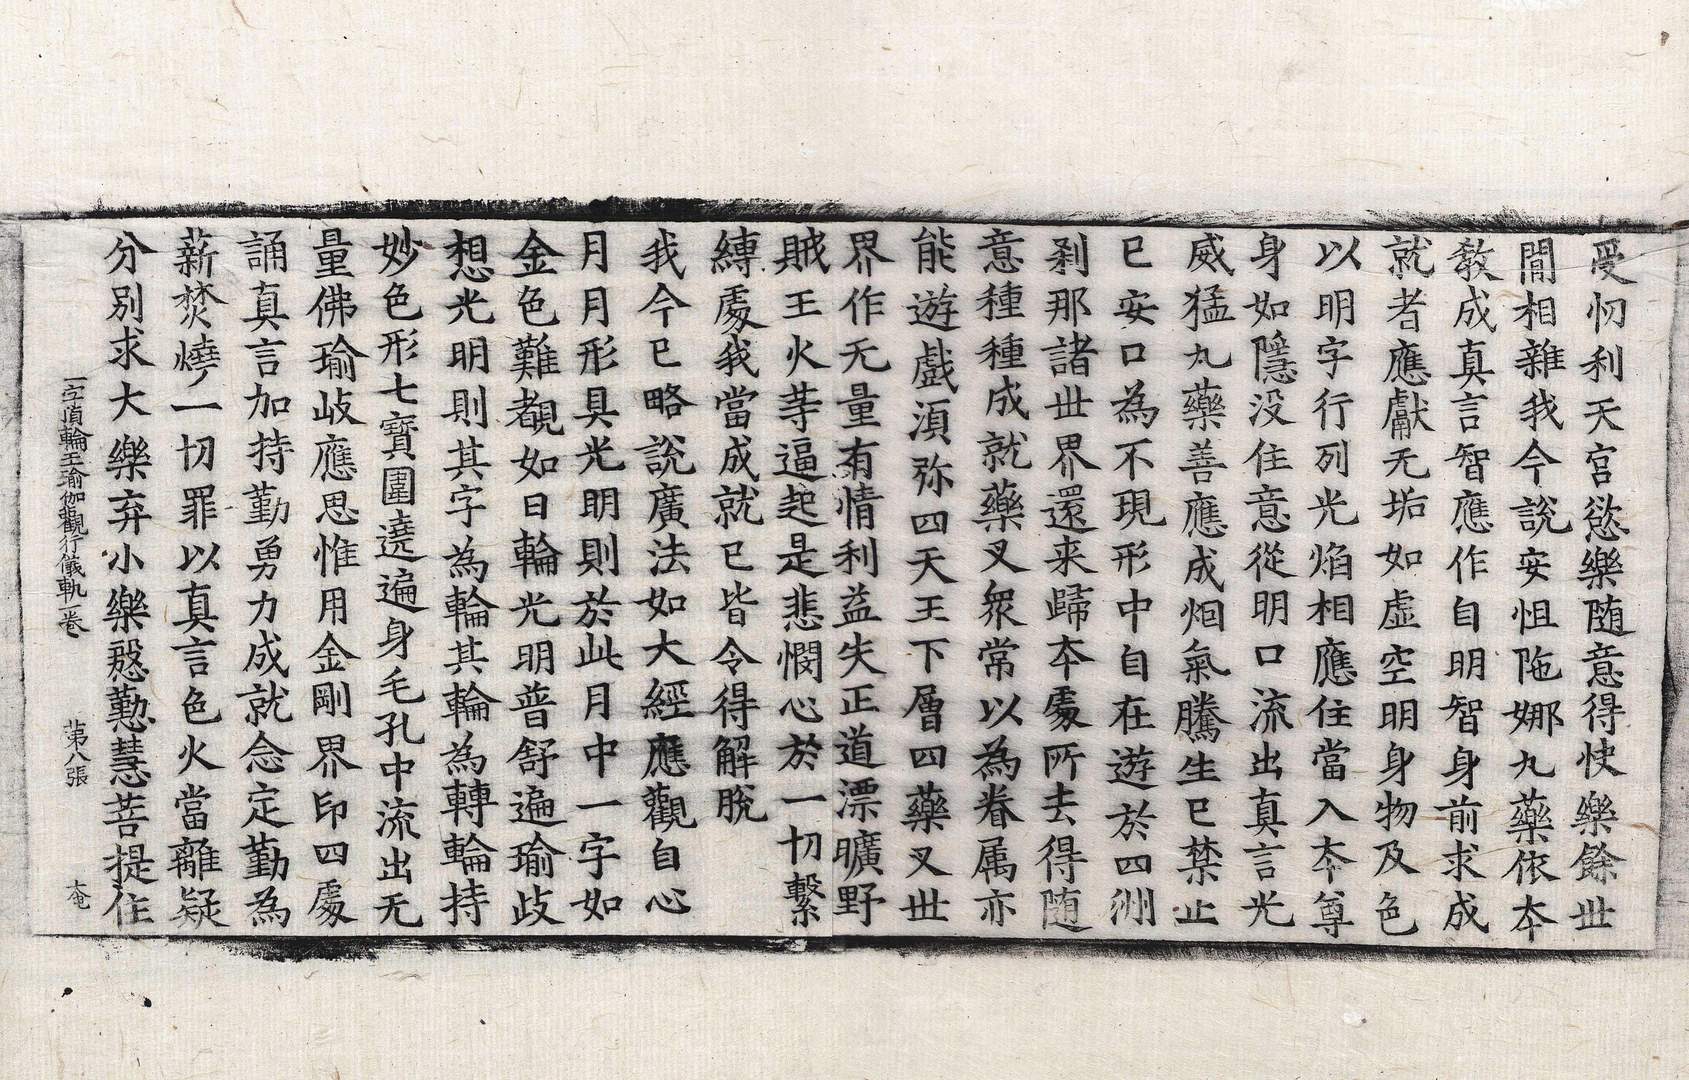 受忉利天宮慾樂随意得快樂餘世
間相雜我今說安怛陁娜九藥依夲
教成真言智應作自明智身前求成
就者應獻无垢如虛空明身物及色
以明字行列光焰相應住當入夲尊
身如隱没住意從明口流出真言光
威猛丸藥善應成烟氣騰生已禁止
已安口為不現形中自在遊於四洲
刹那諸世界還来歸夲處所去得随
意種種成就藥叉衆常以為眷属亦
能遊戲湏弥四天王下層四藥叉世
界作无量有情利益失正道漂曠野
賊王火䓁逼起是悲憫心於一切繫
縛處我當成就已皆令得解脫
我今已略說廣法如大經應觀自心
月月形具光明則於此月中一字如
金色難覩如日輪光明普舒遍瑜歧
想光明則其字為輪其輪為轉輪持
妙色形七寶圍遶遍身毛孔中流出无
量佛瑜歧應思惟用金剛界印四處
誦真言加持勤勇力成就念定勤為
薪焚燒一切罪以真言色火當離疑
分別求大樂弃小樂慇懃慧菩提住
一字頂輪王瑜伽觀行儀軌一卷 苐八張 大奄